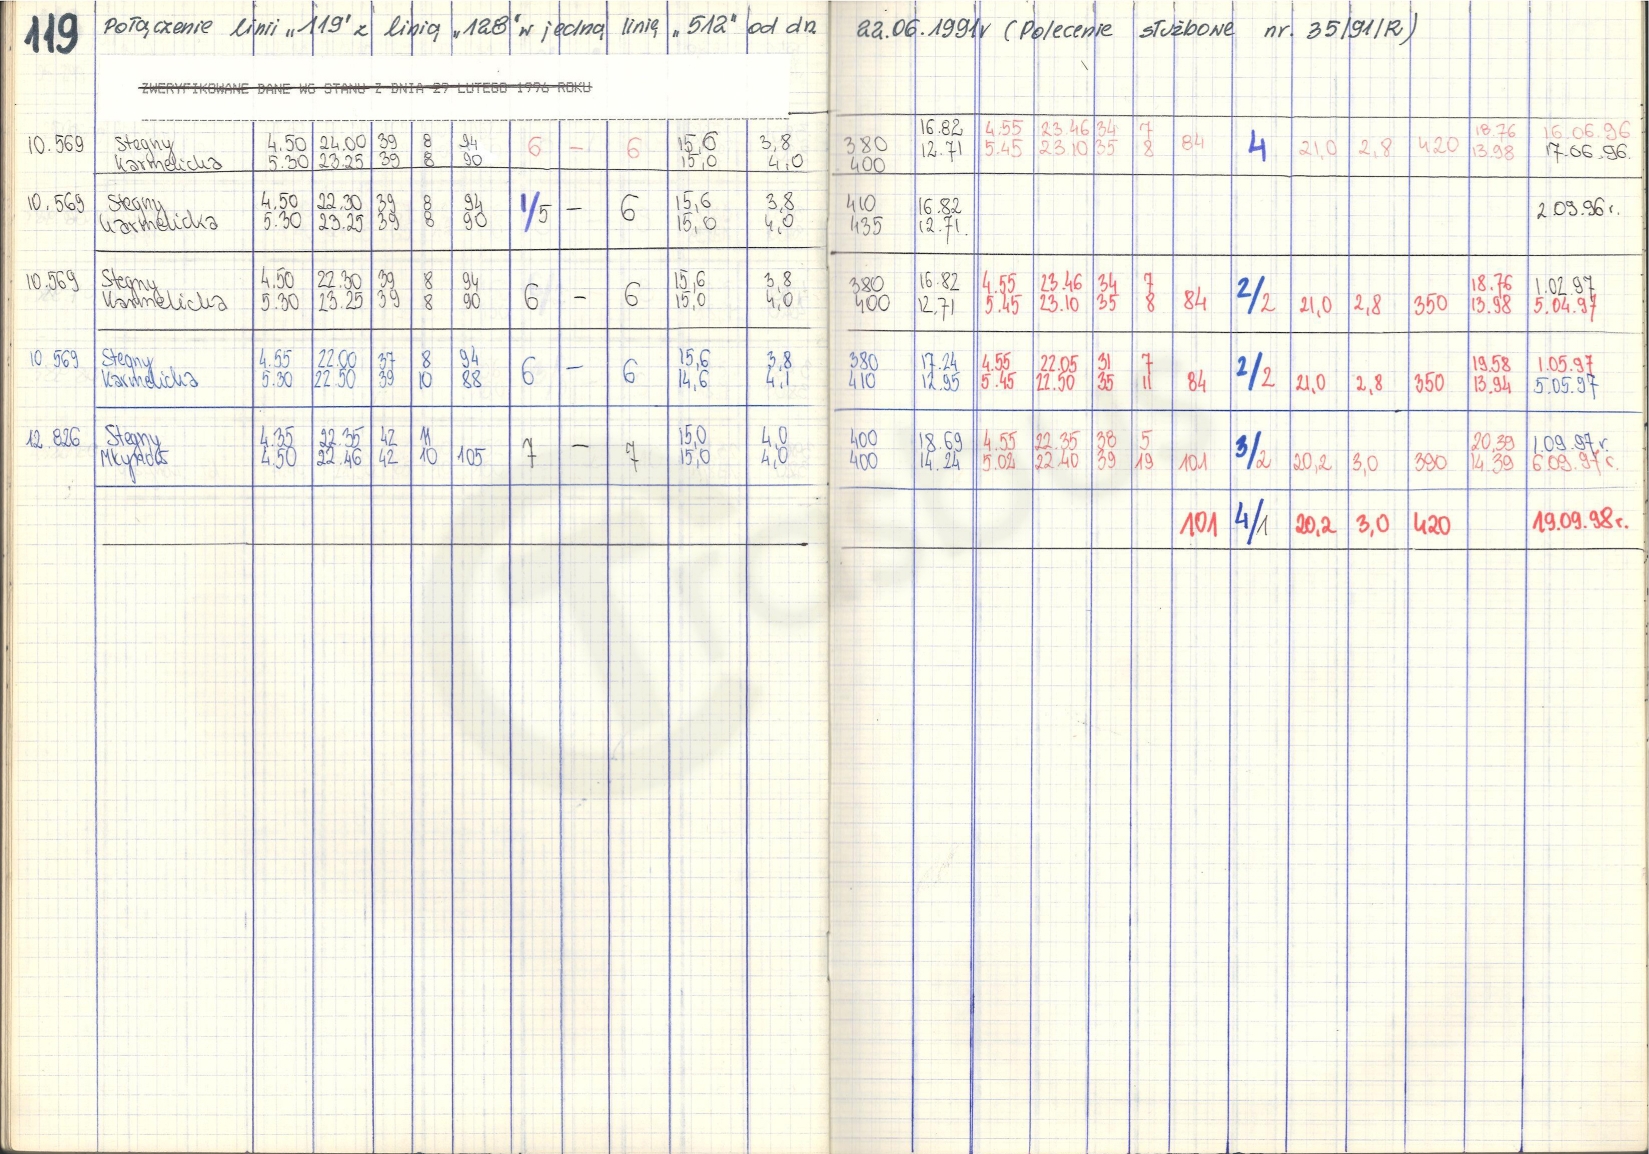 119 Połączenie linii „119" z linią „128" w jedną linię „512" od dn. 22.06.1991r (Polecenie służbowe nr. 35/91/R)
ZWERYFIKOWANE DANE WG STANU Z DNIA 29 LUTEGO 1996 ROKU
10.569 Stegny 4.50 24.00 39 8 94 6 – 6 15,6 3,8 380 16.82 4.55 23.46 34 7 84 4 21,0 2,8 420 18.76 16.06.96
Karmelicka 5.30 23.25 39 8 90 15,0 4,0 400 12.71 5.45 23.10 35 8 13.98 17.06.96.
10.569 Stegny 4.50 22.30 39 8 94 1/5 – 6 15,6 3,8 410 16.82 2.09.96r.
Karmelicka 5.30 23.25 39 8 90 15,0 4,0 435 12.71.
10.569 Stegny 4.50 22.30 39 8 94 6 – 6 15,6 3,8 380 16.82 4.55 23.46 34 7 84 2/2 21,0 2,8 350 18.76 1.02.97
Karmelicka 5.30 23.25 39 8 90 15,0 4,0 400 12.71 5.45 23.10 35 8 13.98 5.04.97
10.569 Stegny 4.55 22.00 37 8 94 6 – 6 15,6 3,8 380 17.24 4.55 22.05 31 7 84 2/2 21,0 2,8 350 19.58 1.05.97
Karmelicka 5.30 22.50 39 10 88 14,6 4,1 410 12.95 5.45 22.50 35 11 13.94 5.05.97
12.826 Stegny 4.35 22.35 42 11 105 7 – 7 15,0 4,0 400 18.69 4.55 22.35 38 5 101 3/2 20,2 3,0 390 20.39 1.09.97r.
4.50 22.46 42 10 15,0 4,0 400 14.24 5.02 22.40 39 19 14.39 6.09.97r.
101 4/1 20,2 3,0 420 19.09.98r.